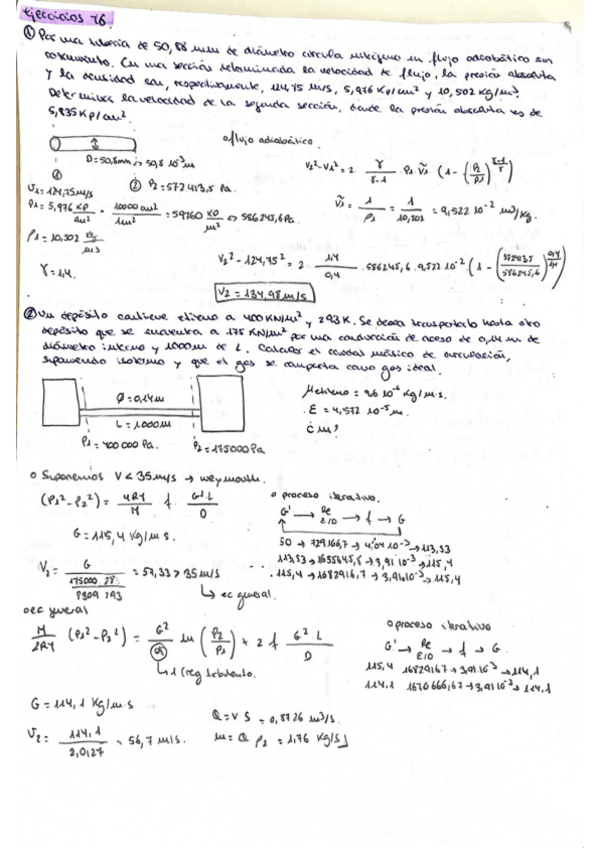 Ejercicios T6.
① Por una tubería de 50,88 mm de diámetro circula nitrógeno en flujo adiabático sin
rozamiento. En una sección determinada la velocidad de flujo, la presión absoluta
y la densidad son, respectivamente, 124,75 m/s, 5,976 Kp/cm² y 10,502 Kg/m³.
Determinar la velocidad de la segunda sección, donde la presión absoluta es de
5,835 Kp/cm².
o flujo adiabático.
D = 50,8mm ⇔ 50,8 10⁻³ m
① ② P2 = 572413,5 Pa.
V1 = 124,75 m/s
P1 = 5,976 Kp/cm² · 10000 cm²/1m² = 59760 Kp/m² ⇔ 586245,6 Pa.
ρ1 = 10,502 Kg/m³
γ = 1,4.
V2² - V1² = 2 · γ/γ-1 · P1 · Ṽ1 · (1 - (P2/P1)^γ-1/γ)
Ṽ1 = 1/ρ1 = 1/10,502 = 9,522 10⁻² m³/kg.
V2² - 124,75² = 2 · 1,4/0,4 · 586245,6 · 9,522 10⁻² · (1 - (572413,5/586245,6)^0,4/1,4)
V2 = 134,98 m/s
② Un depósito contiene etileno a 400 KN/m² y 293K. Se desea transportarlo hasta otro
depósito que se encuentra a 175 KN/m² por una conducción de acero de 0,14 m de
diámetro interno y 1000m de L. Calcular el caudal másico de circulación,
suponiendo isotermo y que el gas se comporta como gas ideal.
Ø = 0,14m
L = 1000m
P1 = 400 000 Pa. P2 = 175000 Pa
μetileno = 9,6 10⁻⁶ Kg/m·s.
ε = 4,572 10⁻⁵ m.
¿m?
o Suponemos V < 35 m/s → weymouth.
(P1² - P2²) = 4RT/M f G²·L/D
G = 115,4 Kg/m s.
o proceso iterativo.
G' → Re ε/D → f → G
50 → 729166,7 → 4,04 10⁻³ → 113,53
113,53 → 1655645,8 → 3,91 10⁻³ → 115,4
115,4 → 1682916,7 → 3,91 10⁻³ → 115,4
V2 = G / 175000 · 28 / 8309 · 293 = 57,33 > 35 m/s
↳ ec general.
o ec general
M/2RT (P1² - P2²) = G²/α ln (P2/P1) + 2 f G² L/D
↳ 1 (reg turbulento.
o proceso iterativo
G' → Re ε/D → f → G.
115,4 1682916,7 → 3,91 10⁻³ → 114,1
114,1 1670 666,67 → 3,91 10⁻³ → 114,1
G = 114,1 Kg/m s
V2 = 114,1/2,0127 = 56,7 m/s.
Q = V·S = 0,8726 m³/s.
m = Q ρ2 = 1,76 Kg/s